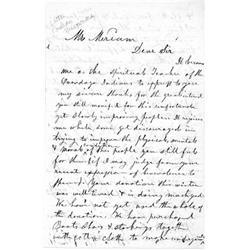 Mr Meriam
Dear Sir
It becomes
me as the Spiritual Teacher of the
Onondaga Indians to express to you
my sincere thanks for the
you still manifest for this unfortunate
yet slowly improving people. It rejoices
me while some get discouraged in
trying to improve the physical, mental
& morals of this people you still
for them if I may judge from your
recent expression of benevolence to
Your donation this winter
was well timed & is doing much good
We have not yet used the whole of
the donation. We have purchased
Boots Shoes & stockings together
with cloth to make